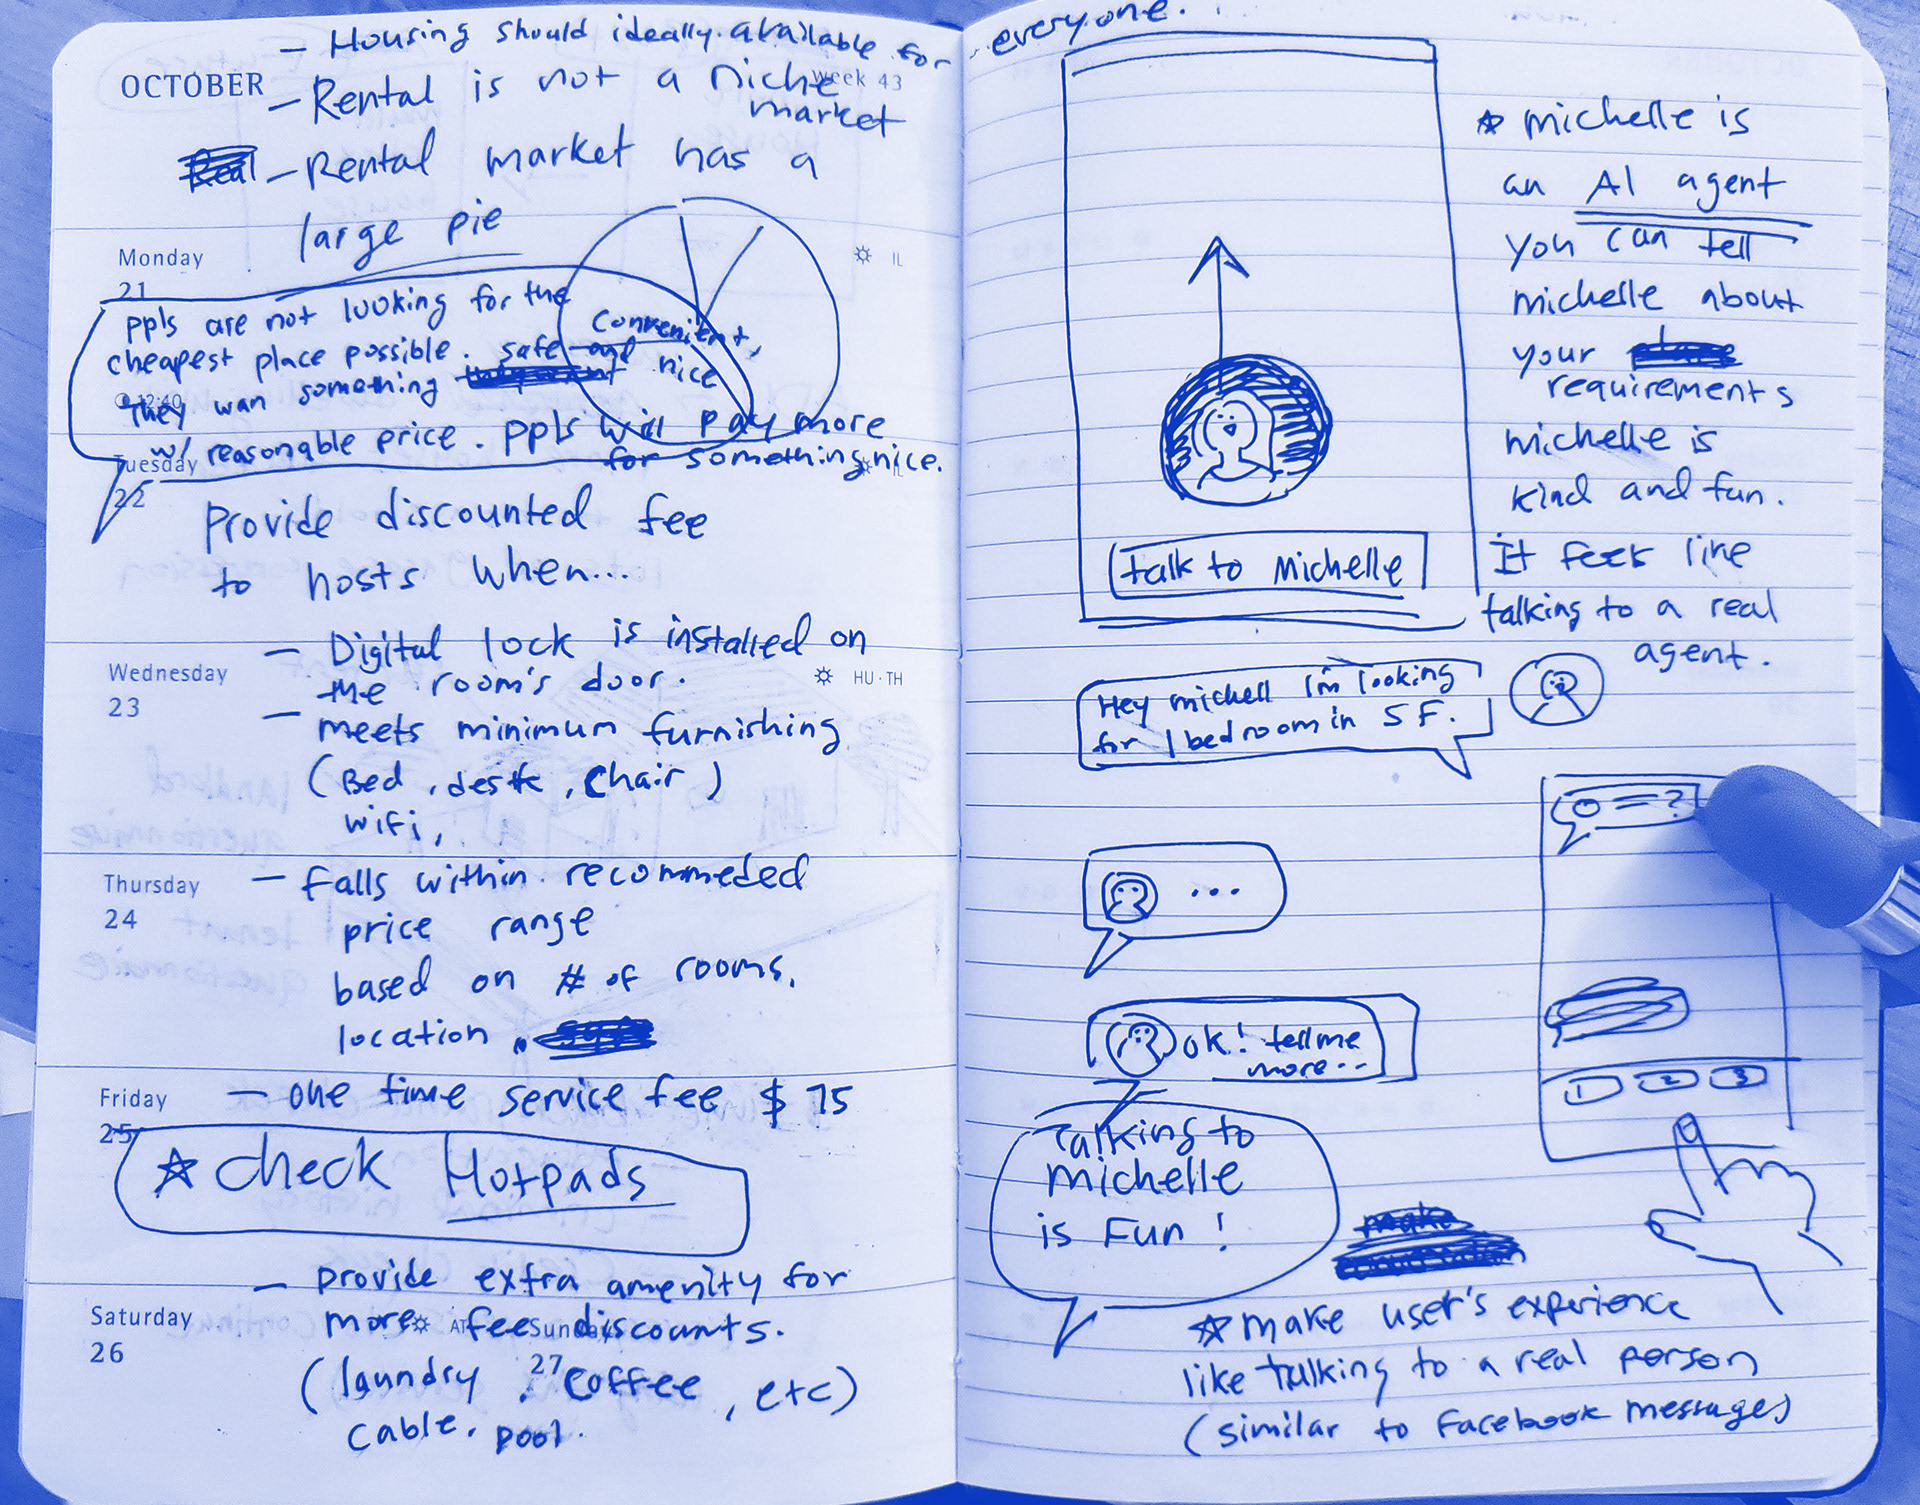 - Housing should ideally available for everyone.
OCTOBER
Week 43
- Rental is not a niche
market
- Rental market has a
large pie
Monday
21
IL
ppls are not looking for the
cheapest place possible.
Convenient,
safe and nice
They wan something
w/ reasonable price. ppls will pay more
for something nice.
Tuesday
22
Provide discounted fee
to hosts when...
- Digital lock is installed on
the room's door.
Wednesday
23
HU · TH
- meets minimum furnishing
(Bed, desk, Chair)
wifi,
Thursday
24
- falls within recommeded
price range
based on # of rooms,
location
Friday
25
- one time service fee $75
☆ check Hotpads
- provide extra amenity for
more fee discounts.
Saturday
26
AT
Sunday
27
(laundry, coffee, etc)
cable, pool.
☆ michelle is
an AI agent
you can tell
michelle about
your
requirements
michelle is
kind and fun.
It feels like
talking to a real
agent.
talk to Michelle
Hey michell I'm looking
for 1 bedroom in SF.
...
= ?
ok! tell me
more..
1 2 3
Talking to
michelle
is Fun!
☆ make user's experience
like talking to a real person
(similar to Facebook messages)